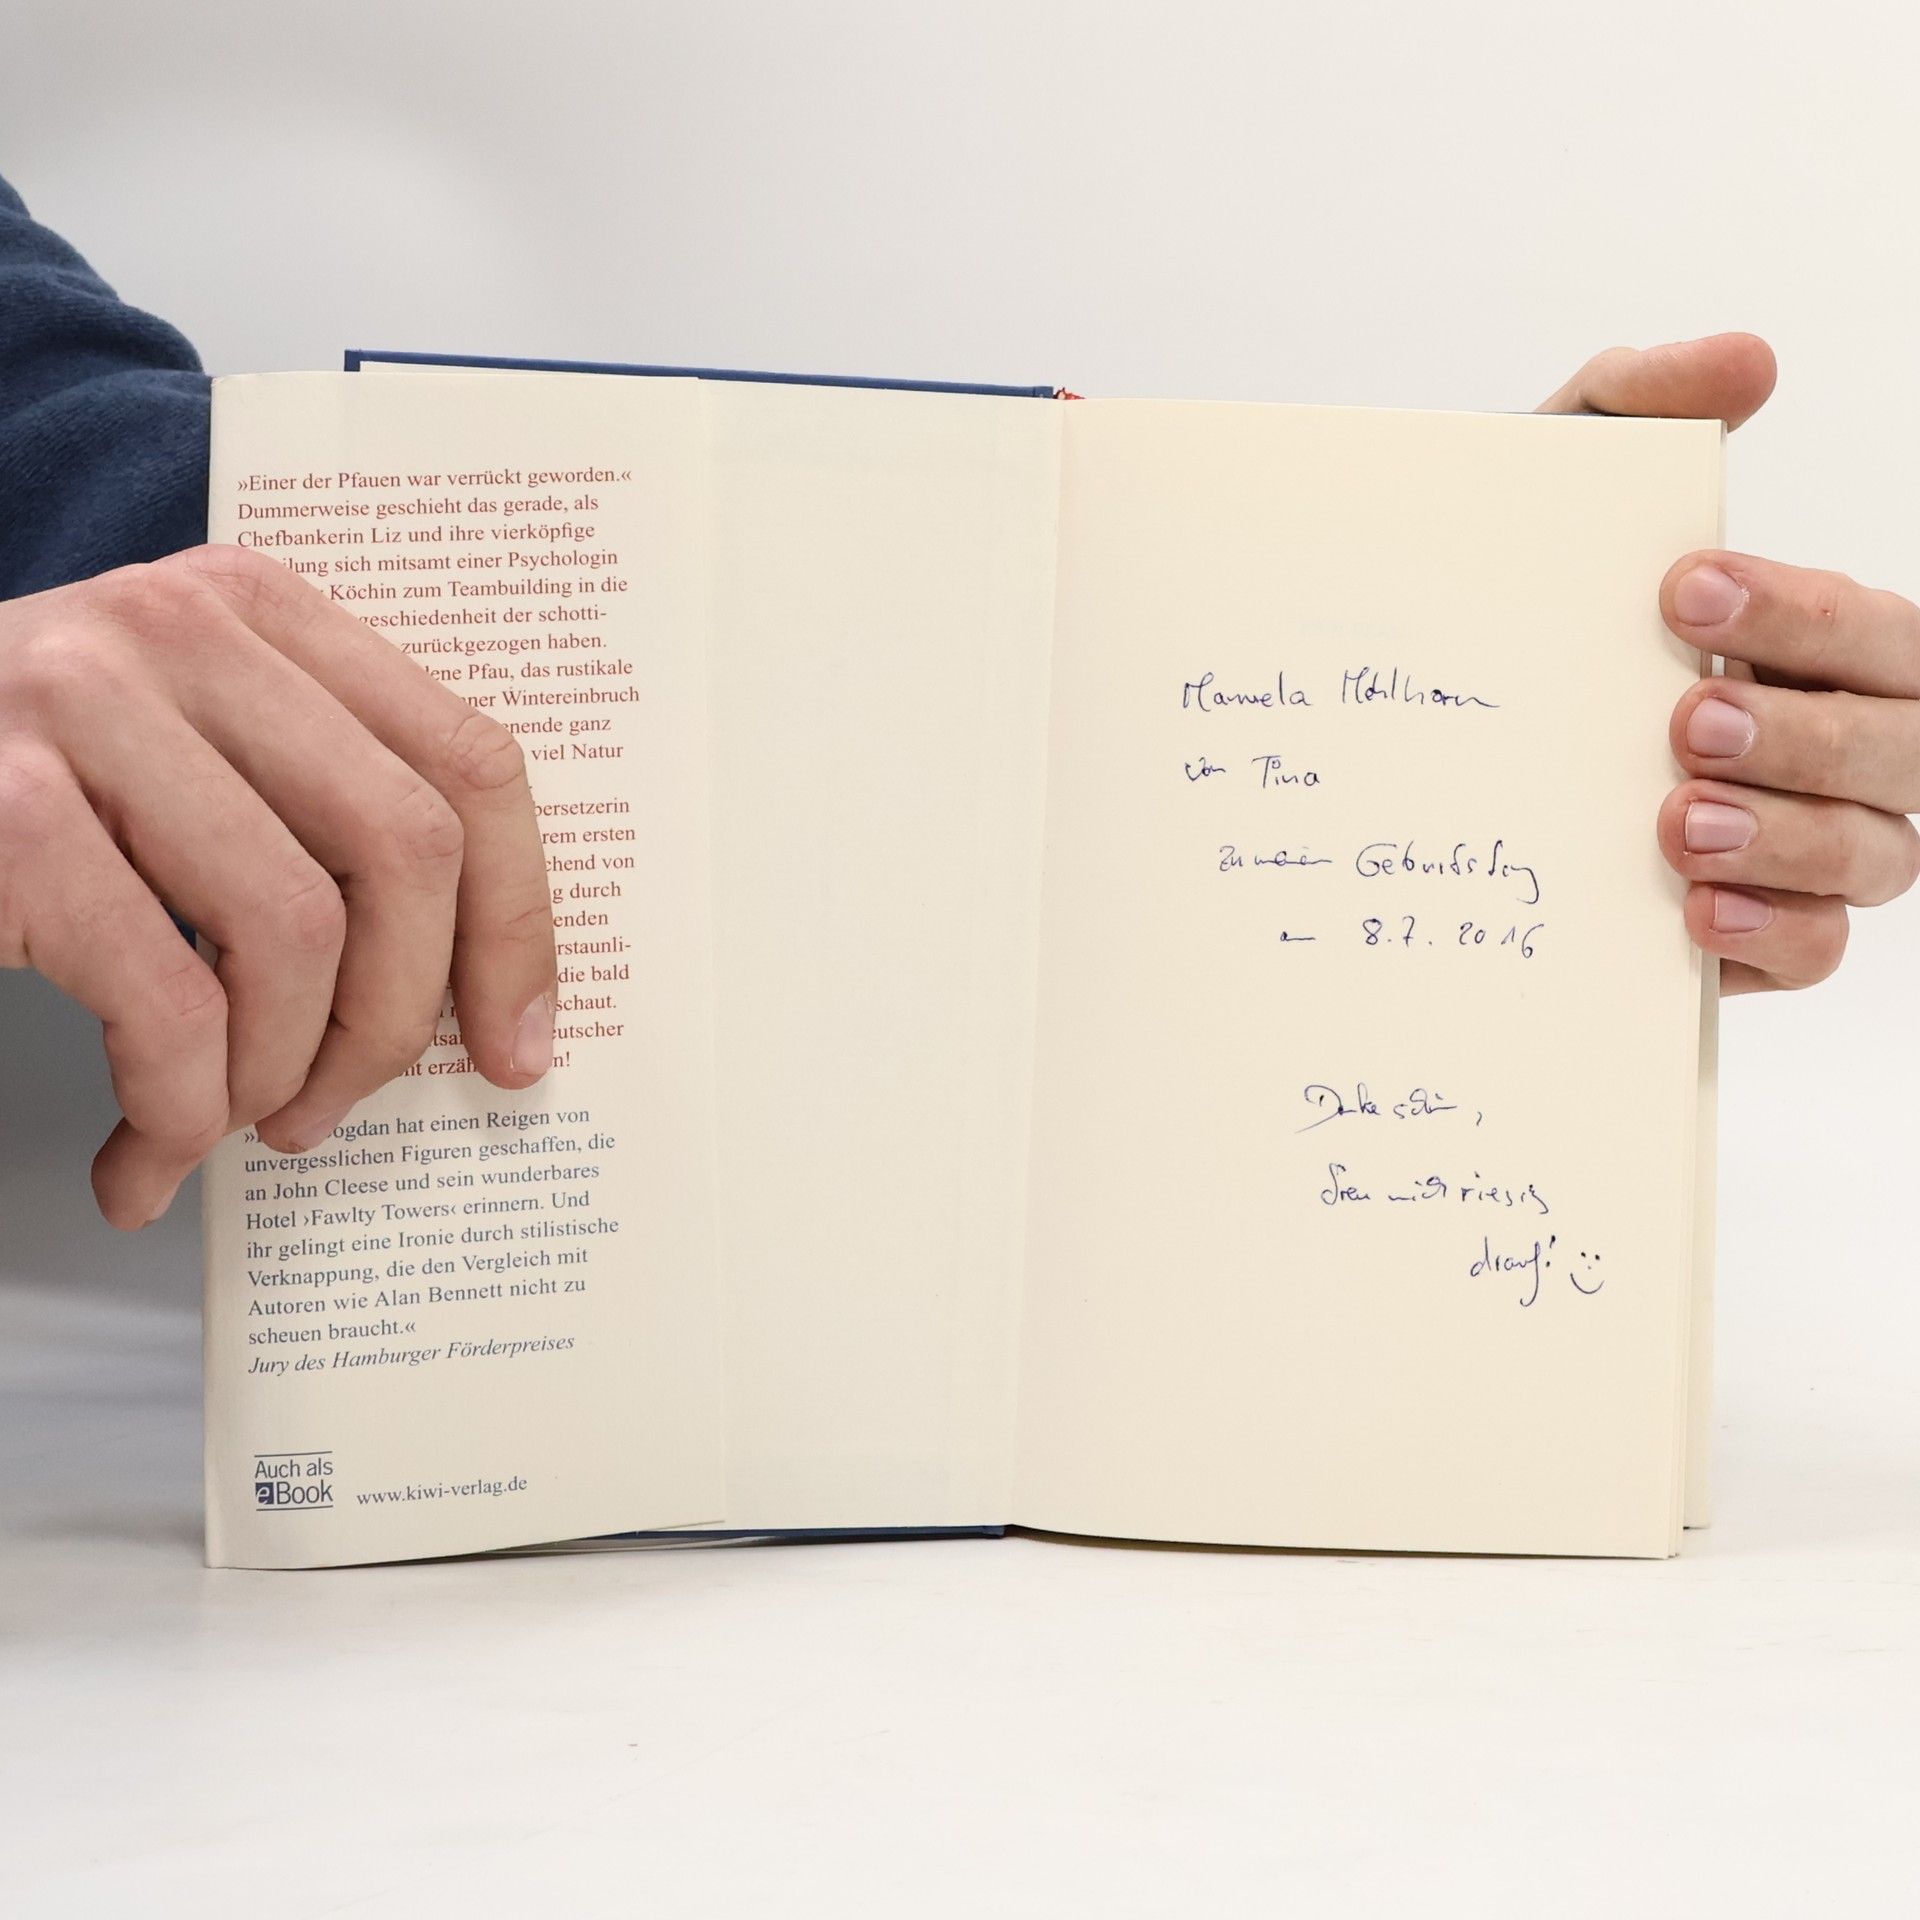 »Einer der Pfauen war verrückt geworden.«
Dummerweise geschieht das gerade, als
Chefbankerin Liz und ihre vierköpfige
ilung sich mitsamt einer Psychologin
Köchin zum Teambuilding in die
geschiedenheit der schotti-
zurückgezogen haben.
ene Pfau, das rustikale
ner Wintereinbruch
enende ganz
viel Natur
bersetzerin
rem ersten
chend von
g durch
enden
rstaunli-
die bald
schaut.
eutscher
nt erzäh n!
» ogdan hat einen Reigen von
unvergesslichen Figuren geschaffen, die
an John Cleese und sein wunderbares
Hotel ›Fawlty Towers‹ erinnern. Und
ihr gelingt eine Ironie durch stilistische
Verknappung, die den Vergleich mit
Autoren wie Alan Bennett nicht zu
scheuen braucht.«
Jury des Hamburger Förderpreises
Auch als
eBook
www.kiwi-verlag.de
Manuela
von Tina
zu meinem Geburtstag
am 8.7.2016
Danke schön,
freu mich riesig
drauf!